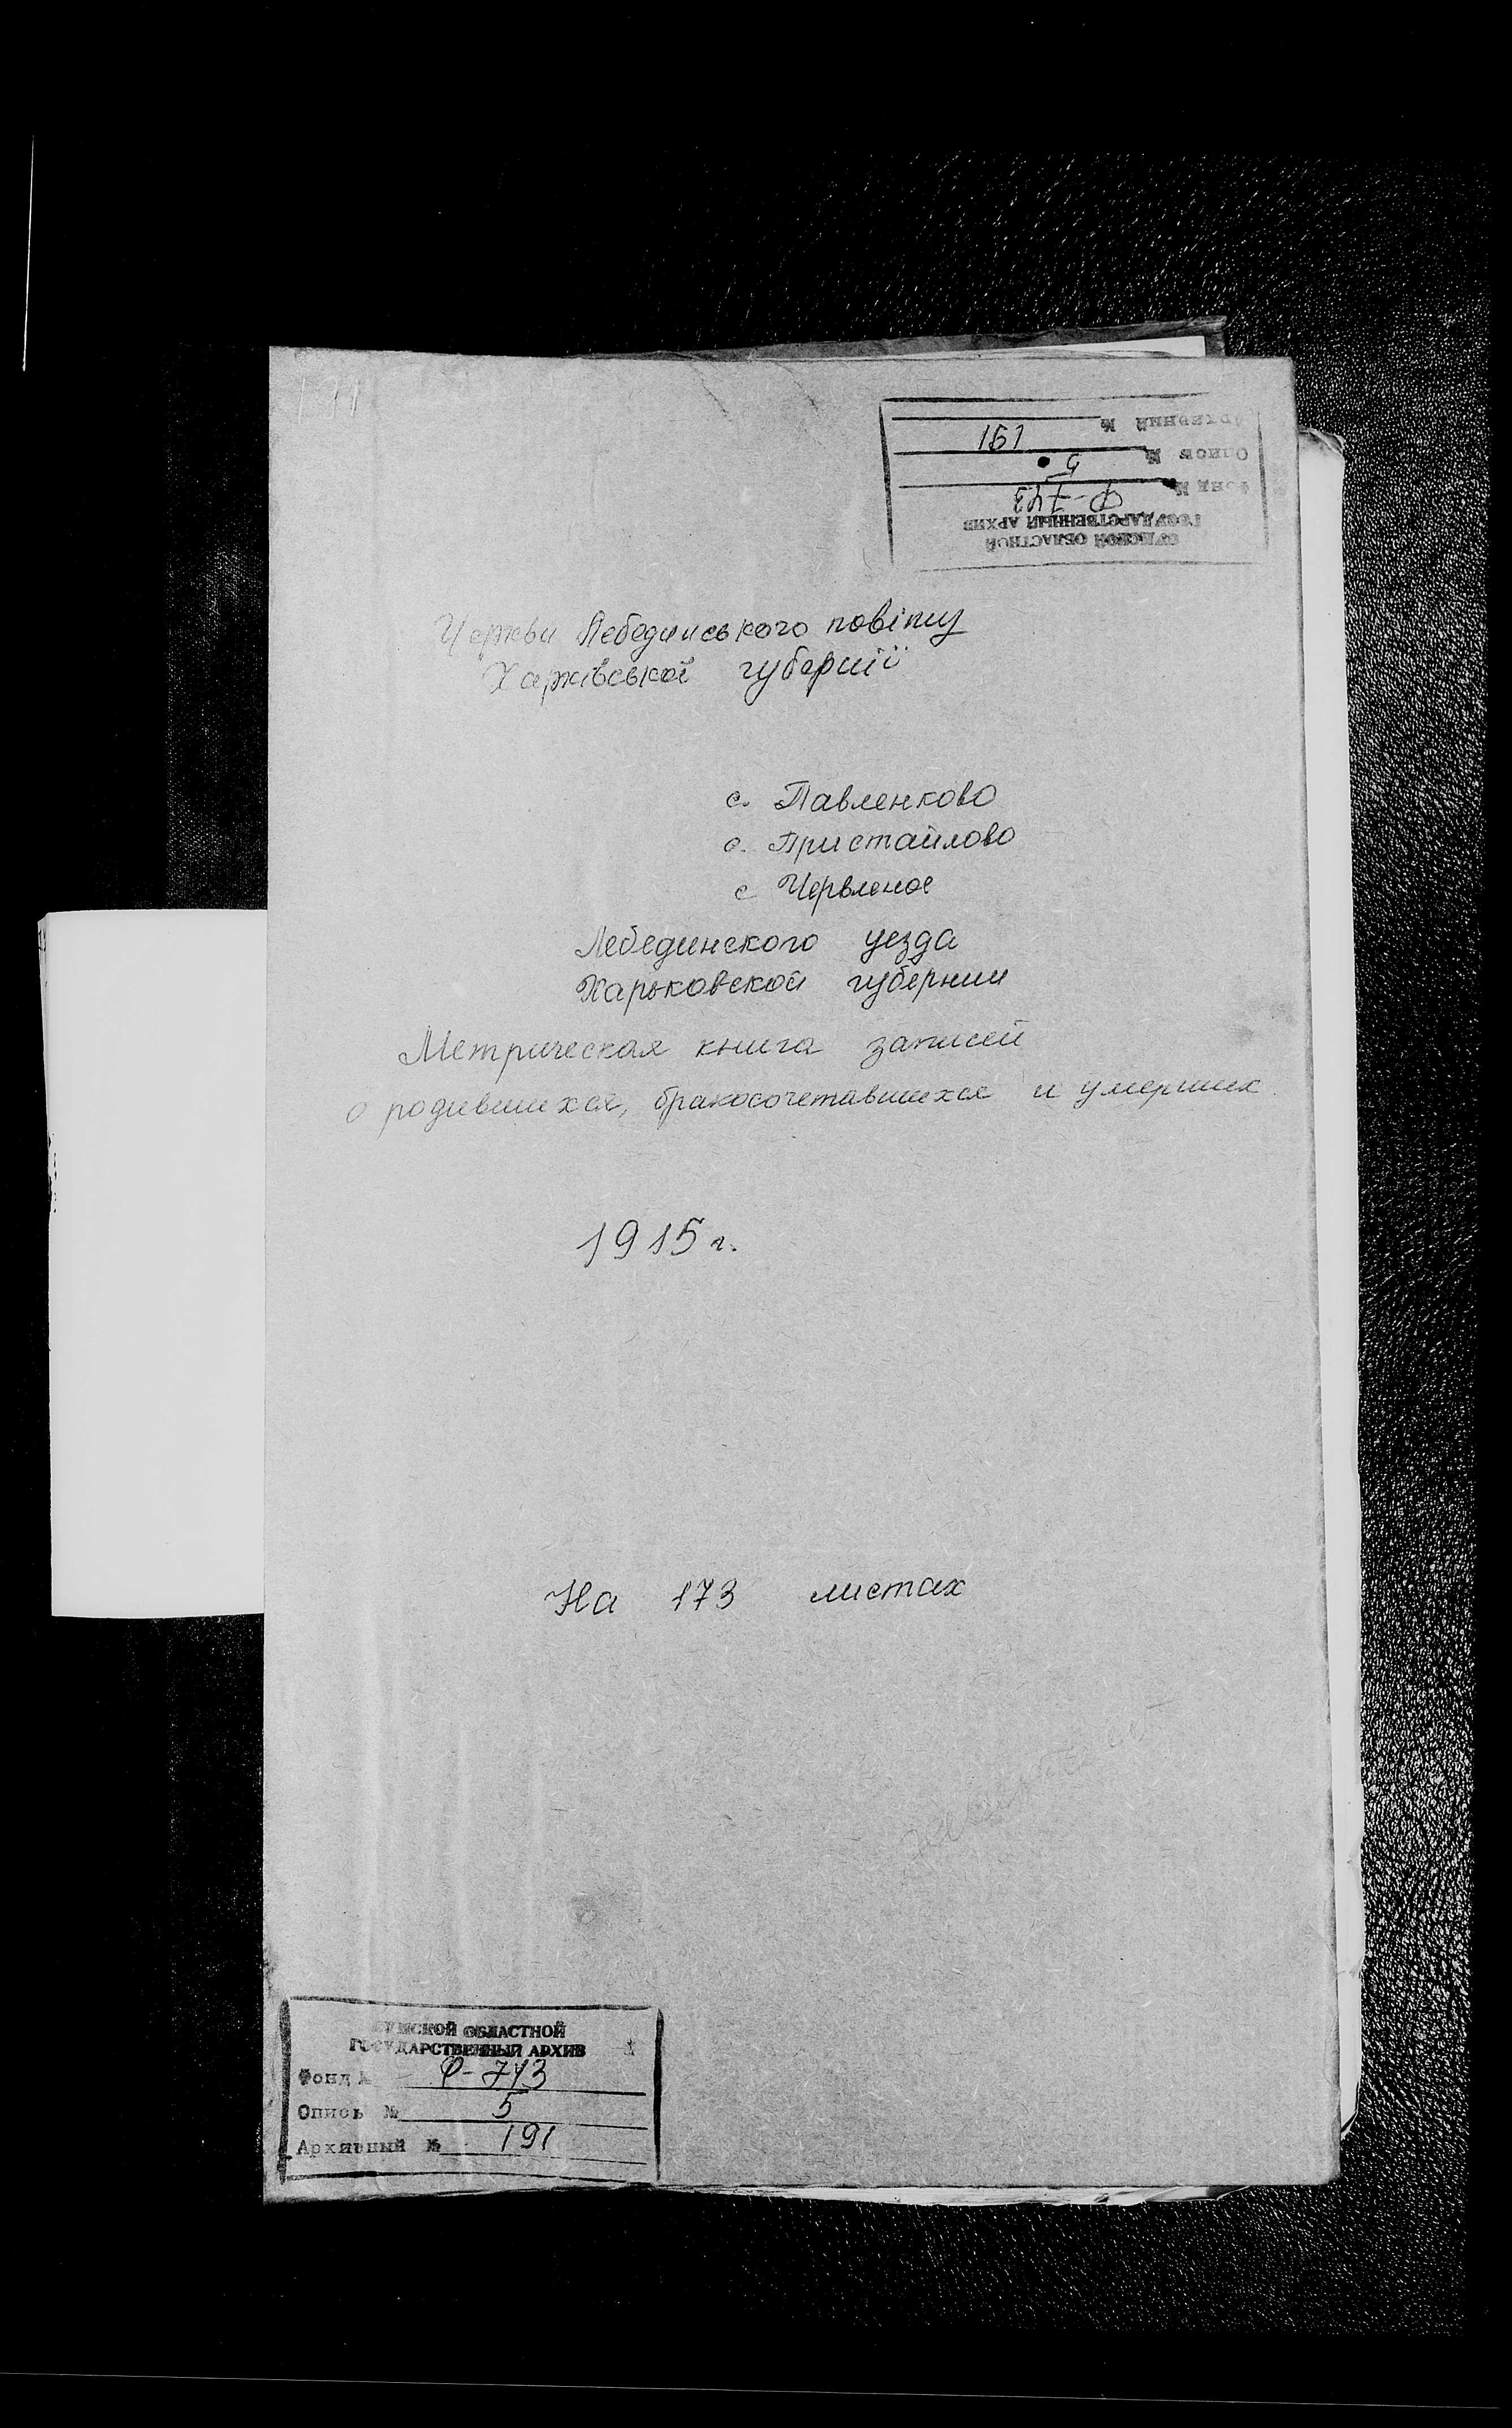 СУМСКОЙ ОБЛАСТНОЙ
ГОСУДАРСТВЕННЫЙ АРХИВ
Фонд № Ф-743
Опись № 5
Архивный № 191
Церкви Лебединського повіту
Харківської губернії
с. Павленково
с. Пристайлово
с Червленое
Лебединского уезда
Харьковской губернии
Метрическая книга записей
о родившихся, бракосочетавшихся и умерших.
1915 г.
На 173 листах
СУМСКОЙ ОБЛАСТНОЙ
ГОСУДАРСТВЕННЫЙ АРХИВ
Фонд № Ф-743
Опись № 5
Архивный № 191